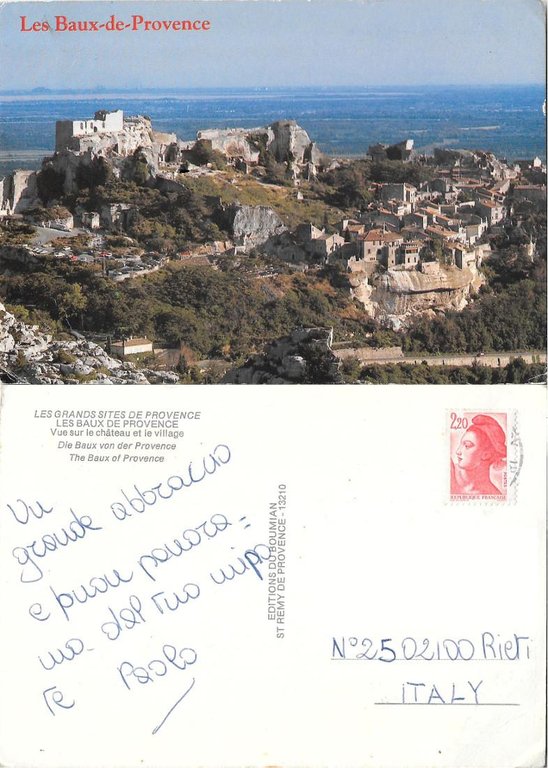 Les Baux-de-Provence
LES GRANDS SITES DE PROVENCE
LES BAUX DE PROVENCE
Vue sur le château et le village
Die Baux von der Provence
The Baux of Provence
Un
grande abbraccio
e buon panora=
ma dal tuo nipo
te Paolo
EDITIONS DU BOUMIAN
ST REMY DE PROVENCE - 13210
2,20
REPUBLIQUE FRANÇAISE
N°25 02100 Rieti
ITALY